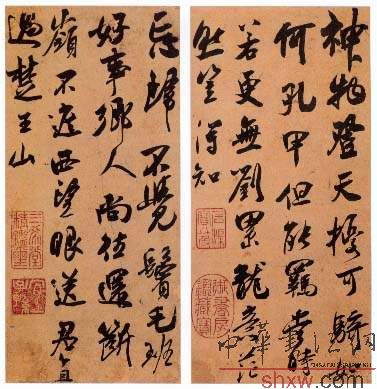 神物登天擾可騎如
何孔甲但能羈當時
若更無劉累龍意茫
然豈得知
忘歸不覺鬢毛班
好事鄉人尚往還斷
嶺不遮西望眼送君直
過楚王山
shxw.com